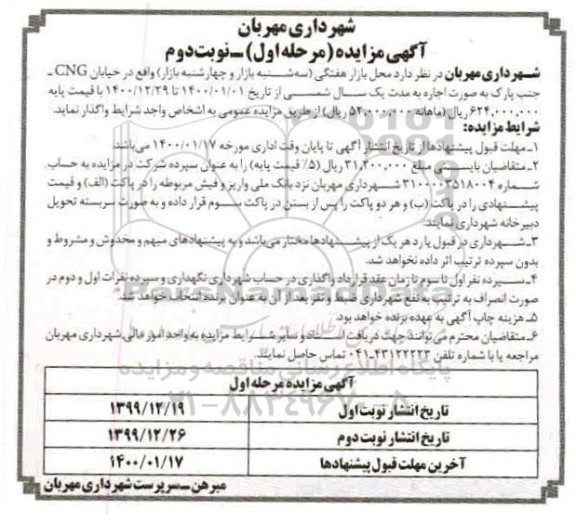 شهرداری مهربان
آگهی مزایده (مرحله اول) ـ نوبت دوم
شهرداری مهربان در نظر دارد محل بازار هفتگی (سه‌شنبه بازار و چهارشنبه بازار) واقع در خیابان CNG ـ
جنب پارک به صورت اجاره به مدت یک سال شمسی از تاریخ ۱۴۰۰/۰۱/۰۱ تا ۱۴۰۰/۱۲/۲۹ با قیمت پایه
۶۲۴,۰۰۰,۰۰۰ ریال (ماهانه ۵۲,۰۰۰,۰۰۰ ریال) از طریق مزایده عمومی به اشخاص واجد شرایط واگذار نماید.
شرایط مزایده:
۱ـ مهلت قبول پیشنهادها از تاریخ انتشار آگهی تا پایان وقت اداری مورخه ۱۴۰۰/۰۱/۱۷ می‌باشد.
۲ـ متقاضیان بایستی مبلغ ۳۱,۲۰۰,۰۰۰ ریال (۵٪ قیمت پایه) را به عنوان سپرده شرکت در مزایده به حساب
شماره ۳۱۰۰۰۰۳۵۱۸۰۰۴ شهرداری مهربان نزد بانک ملی واریز و فیش مربوطه را در پاکت (الف) و قیمت
پیشنهادی را در پاکت (ب) و هر دو پاکت را پس از بستن در پاکت سوم قرار داده و به صورت سربسته تحویل
دبیرخانه شهرداری نمایند.
۳ـ شهرداری در قبول یا رد هر یک از پیشنهادها مختار می‌باشد و به پیشنهادهای مبهم و مخدوش و مشروط و
بدون سپرده ترتیب اثر داده نخواهد شد.
۴ـ سپرده نفر اول تا سوم تا زمان عقد قرارداد واگذاری در حساب شهرداری نگهداری و سپرده نفرات اول و دوم در
صورت انصراف به ترتیب به نفع شهرداری ضبط و نفر بعد از آن به عنوان برنده انتخاب خواهد شد.
۵ـ هزینه چاپ آگهی به عهده برنده خواهد بود.
۶ـ متقاضیان محترم می‌توانند جهت دریافت اسناد و سایر شرایط مزایده به واحد امور مالی شهرداری مهربان
مراجعه یا با شماره تلفن ۴۳۱۲۲۲۲۳-۰۴۱ تماس حاصل نمایند.
پایگاه اطلاع رسانی مناقصه و مزایده
۰۲۱-۸۸۳۴۹۶۷۰-۵
آگهی مزایده مرحله اول
تاریخ انتشار نوبت اول ۱۳۹۹/۱۲/۱۹
تاریخ انتشار نوبت دوم ۱۳۹۹/۱۲/۲۶
آخرین مهلت قبول پیشنهادها ۱۴۰۰/۰۱/۱۷
میرهن ـ سرپرست شهرداری مهربان